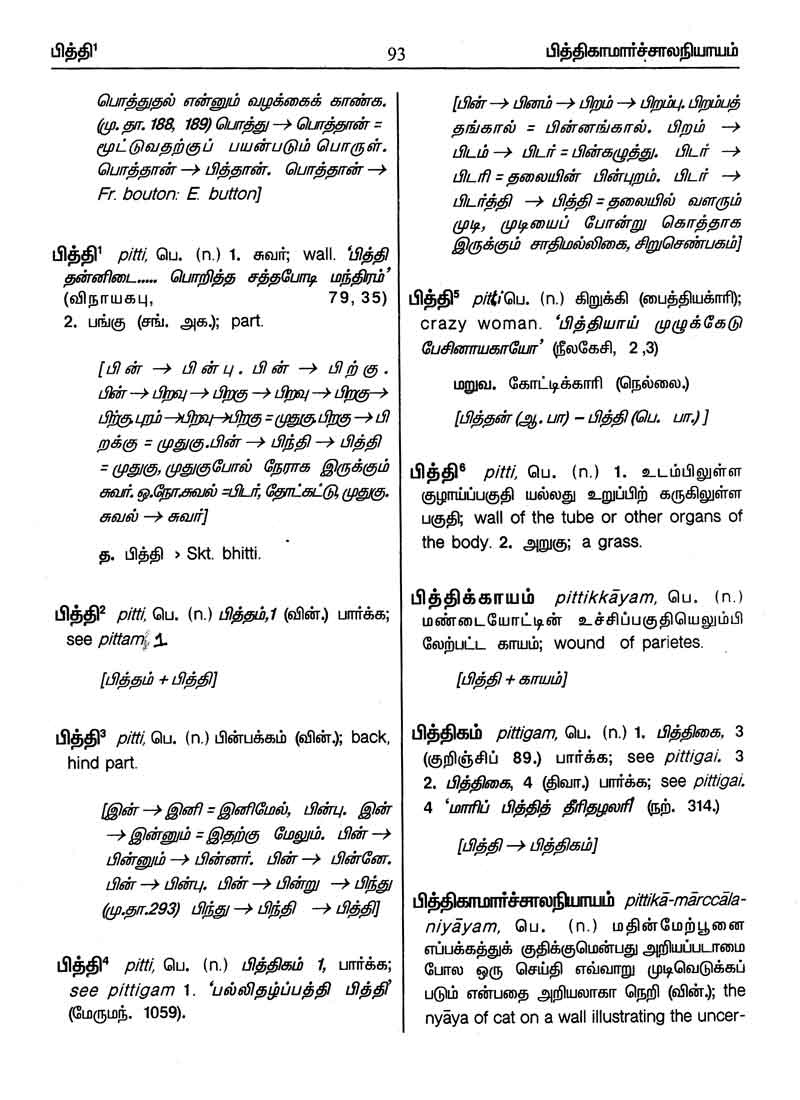 பித்தி¹
93
பித்திகாமார்ச்சாலநியாயம்
பொத்துதல் என்னும் வழக்கைக் காண்க.
(மு. தா. 188, 189) பொத்து → பொத்தான் =
மூட்டுவதற்குப் பயன்படும் பொருள்.
பொத்தான் → பித்தான். பொத்தான் →
Fr. bouton: E. button]
பித்தி¹ pitti, பெ. (n.) 1. சுவர்; wall. 'பித்தி
தன்னிடை..... பொறித்த சத்தபோடி மந்திரம்'
(விநாயகபு, 79, 35)
2. பங்கு (சங். அக.); part.
[பின் → பின்பு. பின் → பிற்கு.
பின் → பிறவு → பிறகு → பிறவு → பிறகு→
பிற்கு.புறம் →பிறவு→பிறகு = முதுகு.பிறகு → பி
றக்கு = முதுகு.பின் → பிந்தி → பித்தி
= முதுகு, முதுகுபோல் நேராக இருக்கும்
சுவர். ஒ.நோ.சுவல் =பிடர், தோட்கட்டு, முதுகு.
சுவல் → சுவர்]
த. பித்தி > Skt. bhitti.
பித்தி² pitti, பெ. (n.) பித்தம்,1 (வின்.) பார்க்க;
see pittam, 1.
[பித்தம் + பித்தி]
பித்தி³ pitti, பெ. (n.) பின்பக்கம் (வின்.); back,
hind part.
[இன் → இனி = இனிமேல், பின்பு. இன்
→ இன்னும் = இதற்கு மேலும். பின் →
பின்னும் → பின்னர். பின் → பின்னே.
பின் → பின்பு. பின் → பின்று → பிந்து
(மு.தா.293) பிந்து → பிந்தி → பித்தி]
பித்தி⁴ pitti, பெ. (n.) பித்திகம் 1, பார்க்க;
see pittigam 1. 'பல்லிதழ்ப்பத்தி பித்தி'
(மேருமந். 1059).
[பின் → பினம் → பிறம் → பிறம்பு. பிறம்பத்
தங்கால் = பின்னங்கால். பிறம் →
பிடம் → பிடர் = பின்கழுத்து. பிடர் →
பிடரி = தலையின் பின்புறம். பிடர் →
பிடர்த்தி → பித்தி = தலையில் வளரும்
முடி, முடியைப் போன்று கொத்தாக
இருக்கும் சாதிமல்லிகை, சிறுசெண்பகம்]
பித்தி⁵ pitti பெ. (n.) கிறுக்கி (பைத்தியக்ாரி);
crazy woman. 'பித்தியாய் முழுக்கேடு
பேசினாயகாயோ' (நீலகேசி, 2 ,3)
மறுவ. கோட்டிக்காரி (நெல்லை.)
[பித்தன் (ஆ. பா) – பித்தி (பெ. பா.) ]
பித்தி⁶ pitti, பெ. (n.) 1. உடம்பிலுள்ள
குழாய்ப்பகுதி யல்லது உறுப்பிற் கருகிலுள்ள
பகுதி; wall of the tube or other organs of
the body. 2. அறுகு; a grass.
பித்திக்காயம் pittikkāyam, பெ. (n.)
மண்டையோட்டின் உச்சிப்பகுதியெலும்பி
லேற்பட்ட காயம்; wound of parietes.
[பித்தி + காயம்]
பித்திகம் pittigam, பெ. (n.) 1. பித்திகை, 3
(குறிஞ்சிப் 89.) பார்க்க; see pittigai. 3
2. பித்திகை, 4 (திவா.) பார்க்க; see pittigai.
4 'மாரிப் பித்தித் தீரிதழலரி' (நற். 314.)
[பித்தி → பித்திகம்]
பித்திகாமார்ச்சாலநியாயம் pittikā-mārccāla-
niyāyam, பெ. (n.) மதின்மேற்பூனை
எப்பக்கத்துக் குதிக்குமென்பது அறியப்படாமை
போல ஒரு செய்தி எவ்வாறு முடிவெடுக்கப்
படும் என்பதை அறியலாகா நெறி (வின்.); the
nyāya of cat on a wall illustrating the uncer-